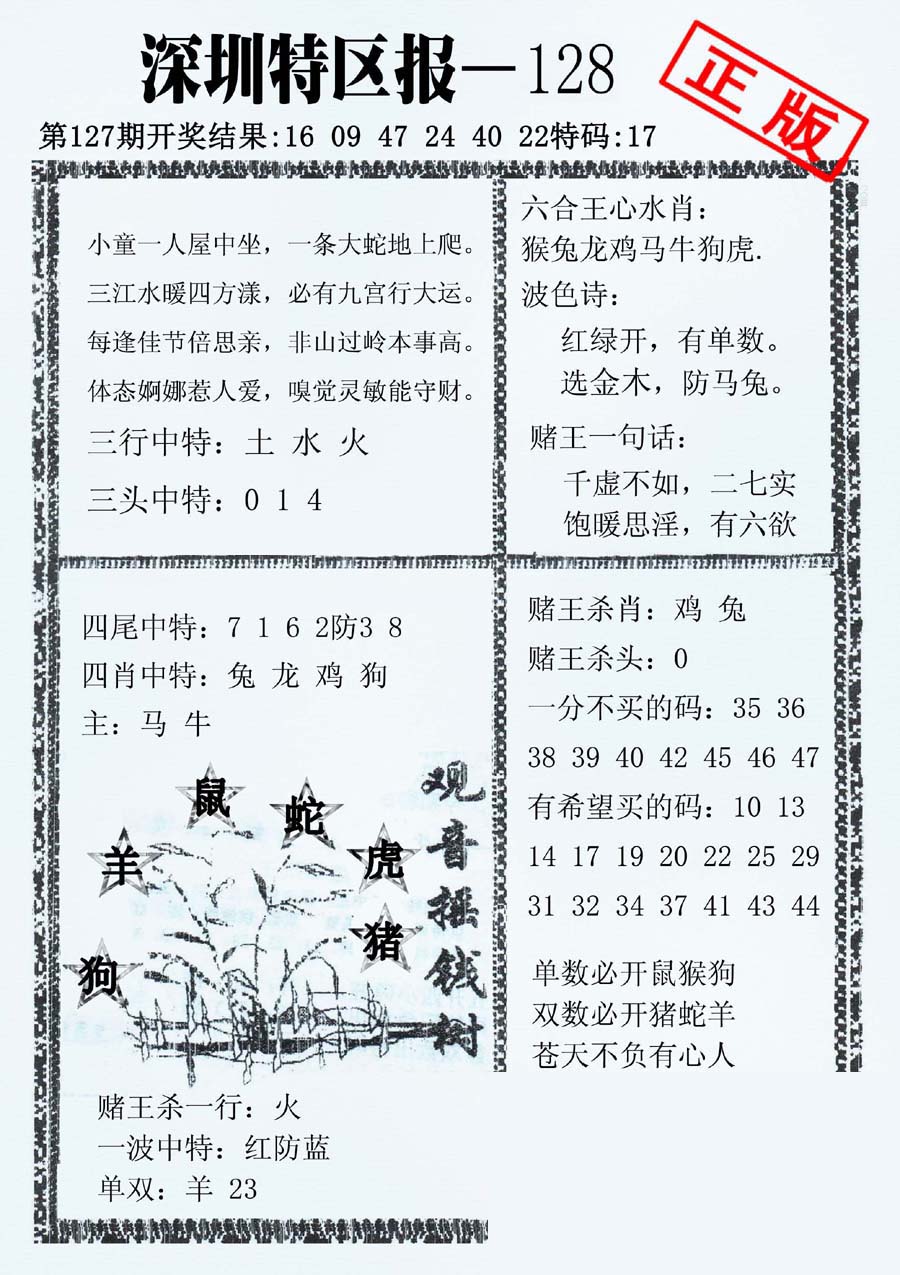 深圳特区报—128
正版
第127期开奖结果:16 09 47 24 40 22特码:17
小童一人屋中坐，一条大蛇地上爬。
三江水暖四方漾，必有九宫行大运。
每逢佳节倍思亲，非山过岭本事高。
体态婀娜惹人爱，嗅觉灵敏能守财。
三行中特：土 水 火
三头中特：0 1 4
六合王心水肖：
猴兔龙鸡马牛狗虎.
波色诗：
红绿开，有单数。
选金木，防马兔。
赌王一句话：
千虚不如，二七实
饱暖思淫，有六欲
四尾中特：7 1 6 2防3 8
四肖中特：兔 龙 鸡 狗
主：马 牛
鼠
蛇
羊
虎
猪
狗
观音摇钱树
赌王杀一行：火
一波中特：红防蓝
单双：羊 23
赌王杀肖：鸡 兔
赌王杀头：0
一分不买的码：35 36
38 39 40 42 45 46 47
有希望买的码：10 13
14 17 19 20 22 25 29
31 32 34 37 41 43 44
单数必开鼠猴狗
双数必开猪蛇羊
苍天不负有心人